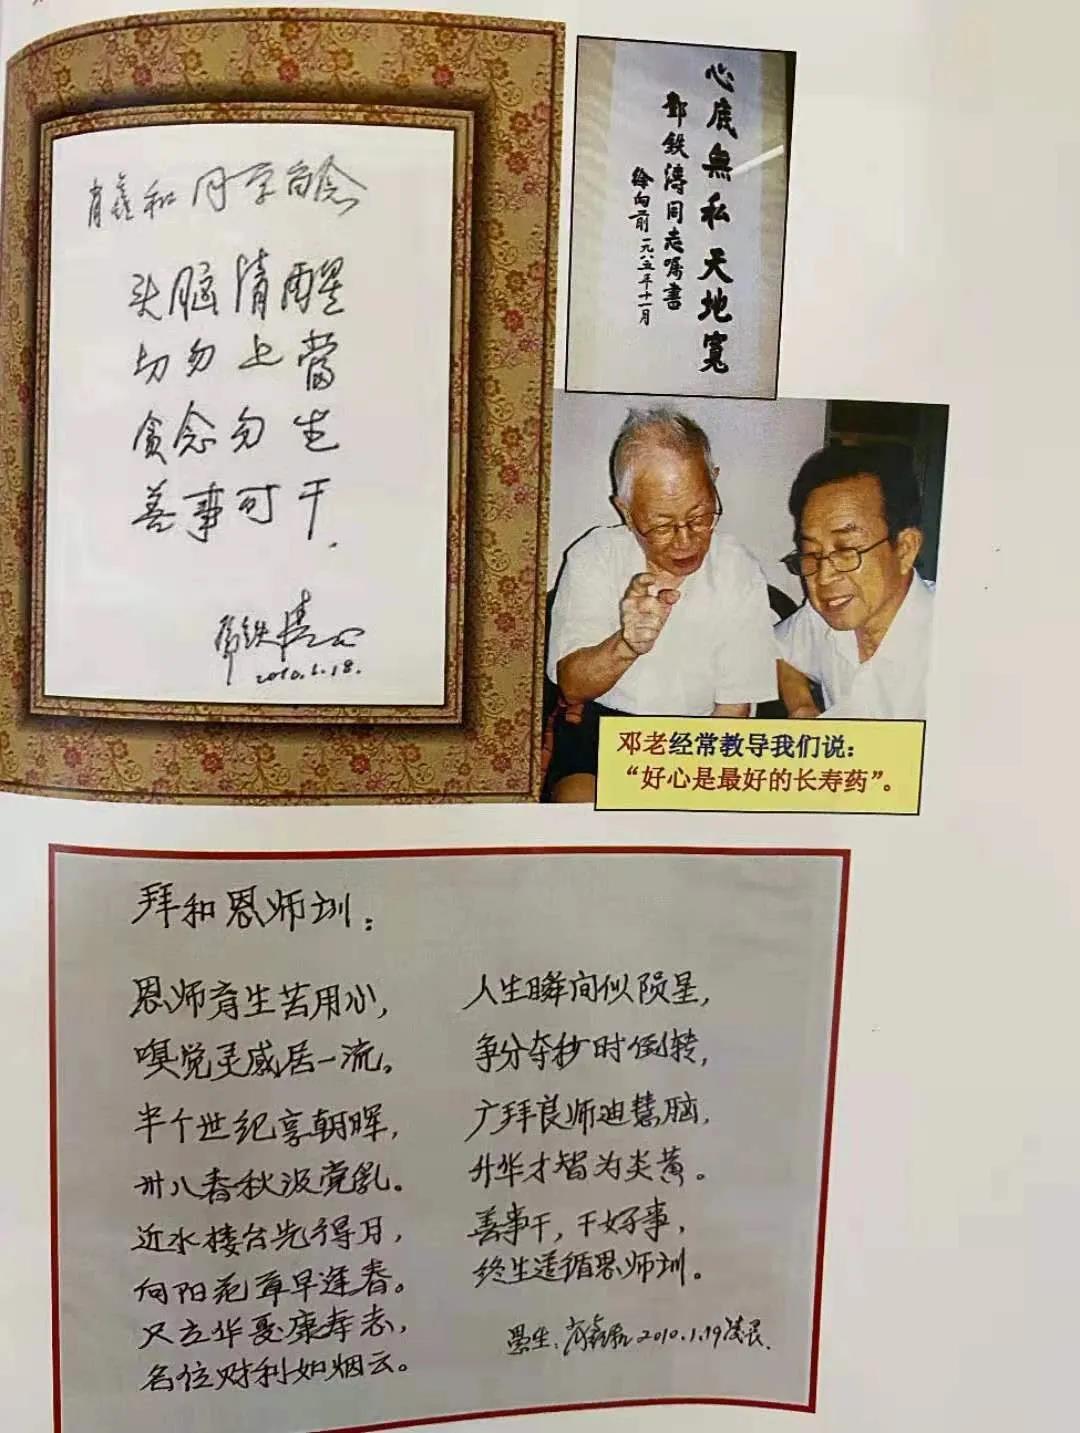 肖鑫和同学留念
头脑清醒
切勿上当
贪念勿生
善事可干.
邓铁涛
2010.1.18.
心底無私天地寬
鄧鉄涛同志嘱書
徐向前 一九八五年十一月
邓老经常教导我们说：
“好心是最好的长寿药”。
拜和恩师训：
恩师育生苦用心，
嗅觉灵感居一流。
半个世纪享朝晖，
卅八春秋汲党乳。
近水楼台先得月，
向阳花草早逢春。
只立华夏康寿志，
名位财利如烟云。
人生瞬间似陨星，
争分夺秒时倒转，
广拜良师迪慧脑，
升华才智为炎黄。
善事干，干好事，
终生遵循恩师训。
学生：肖鑫和 2010.1.19凌晨.